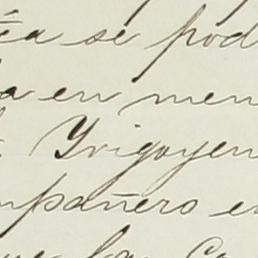 éa se pod
a en men
Yrigoyen
mpañero e